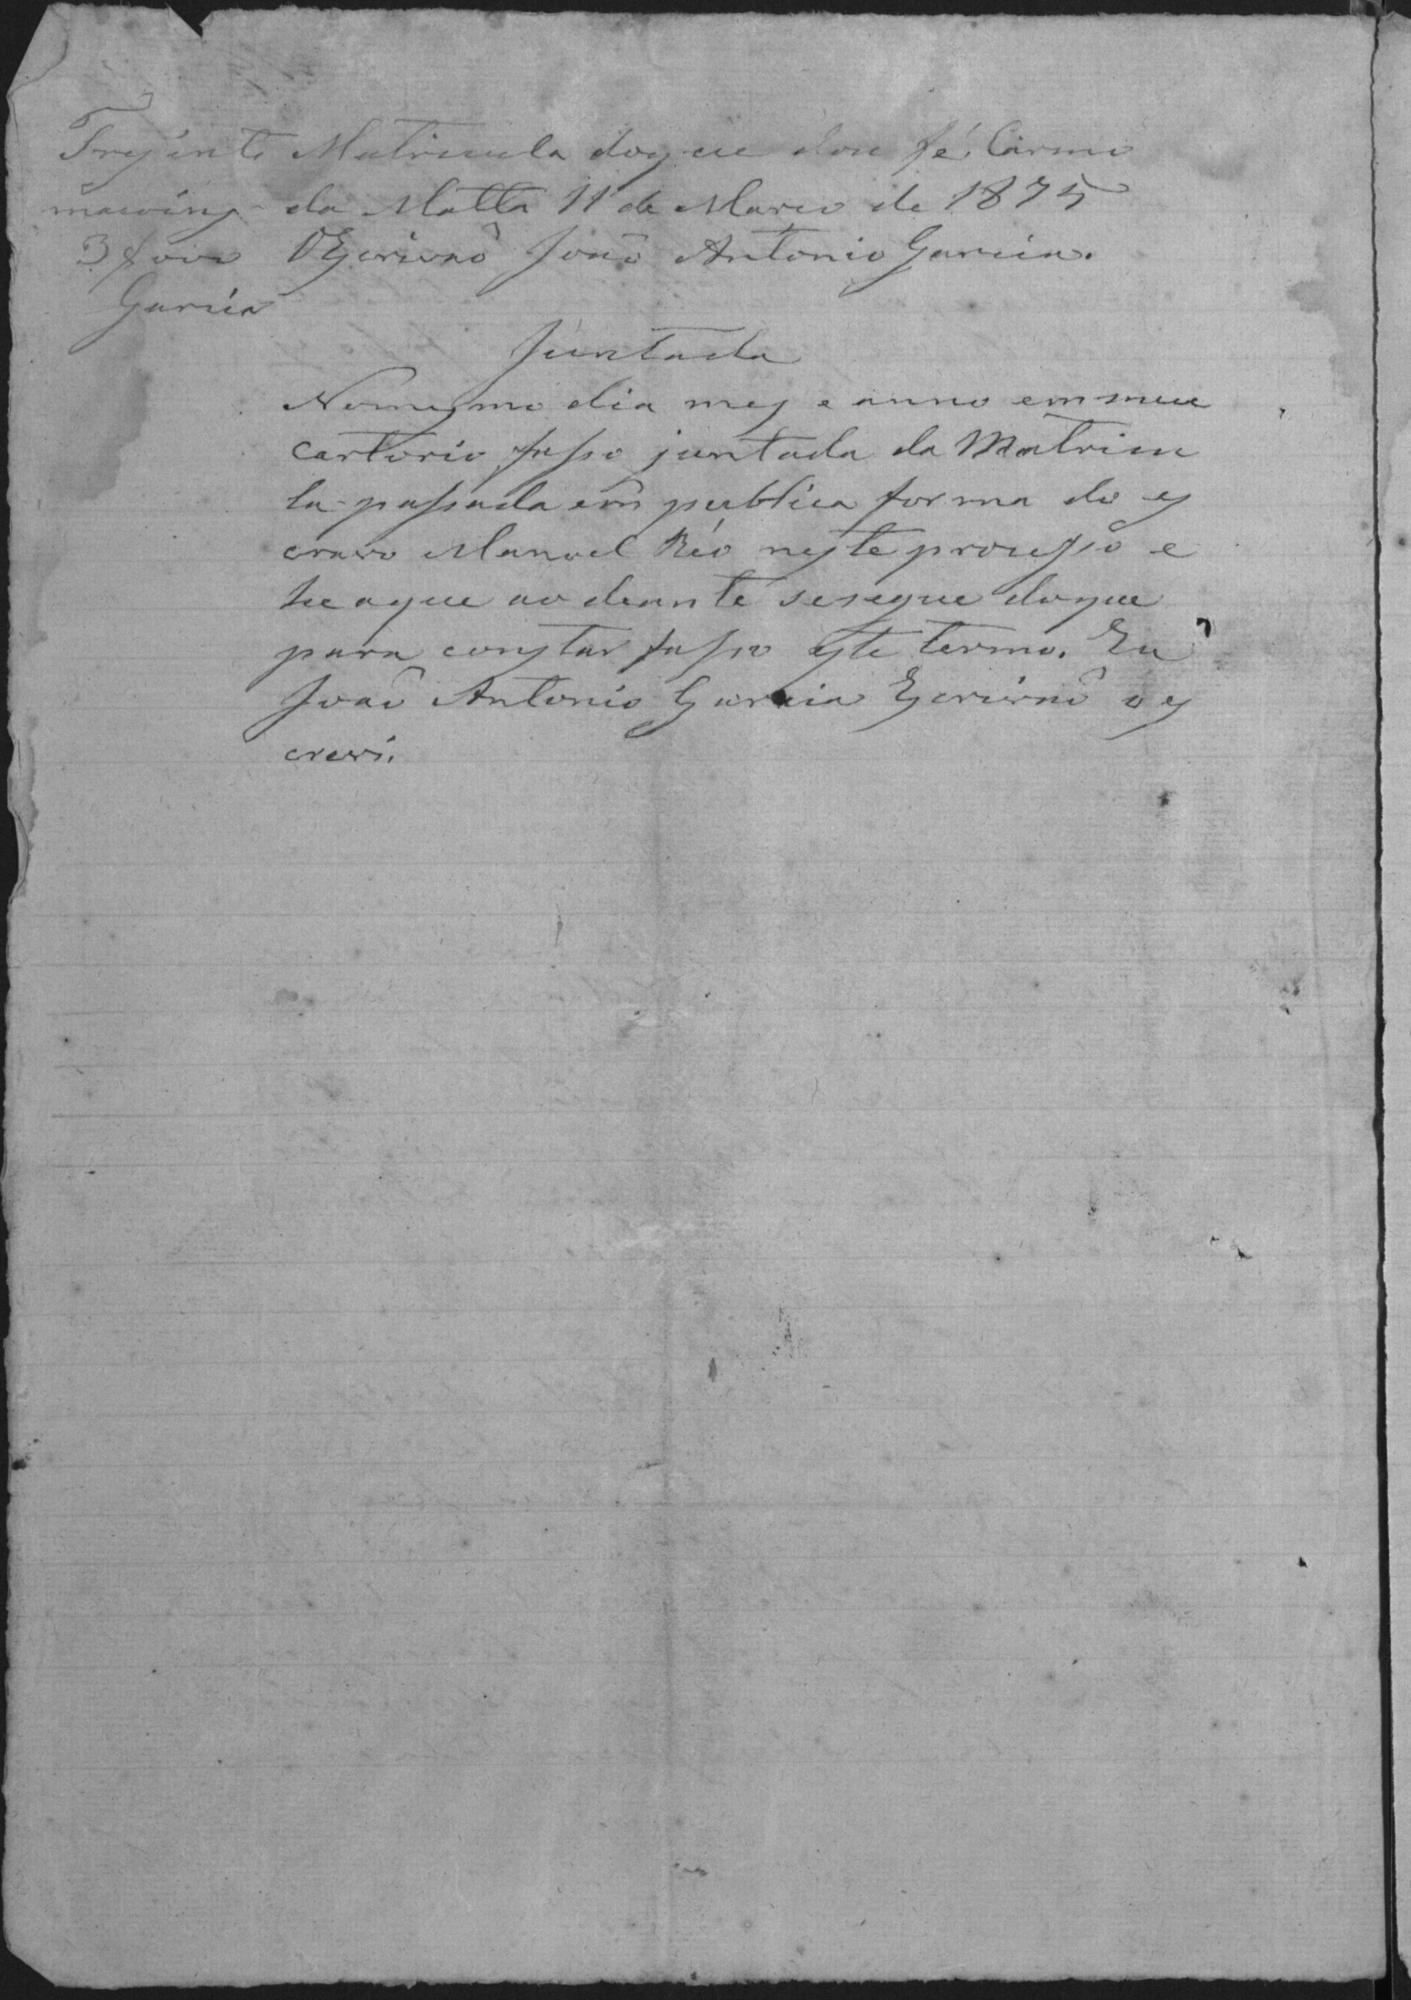 Matricula do que dou fé, Carmo
da Matta 11 de Marco de 1875
OEscrivaõ Joaõ Antonio Garcia.
Garcia
Juntada
Nomesmo dia mes e anno em meu
cartorio fasso juntada da Matricu
la passada em publica forma do es
cravo Manoel Réo neste processo e
he a que ao deante se segue do que
para constar fasso este termo. Eu
Joaõ Antonio Garcia Escrivaõ o es
crevi.